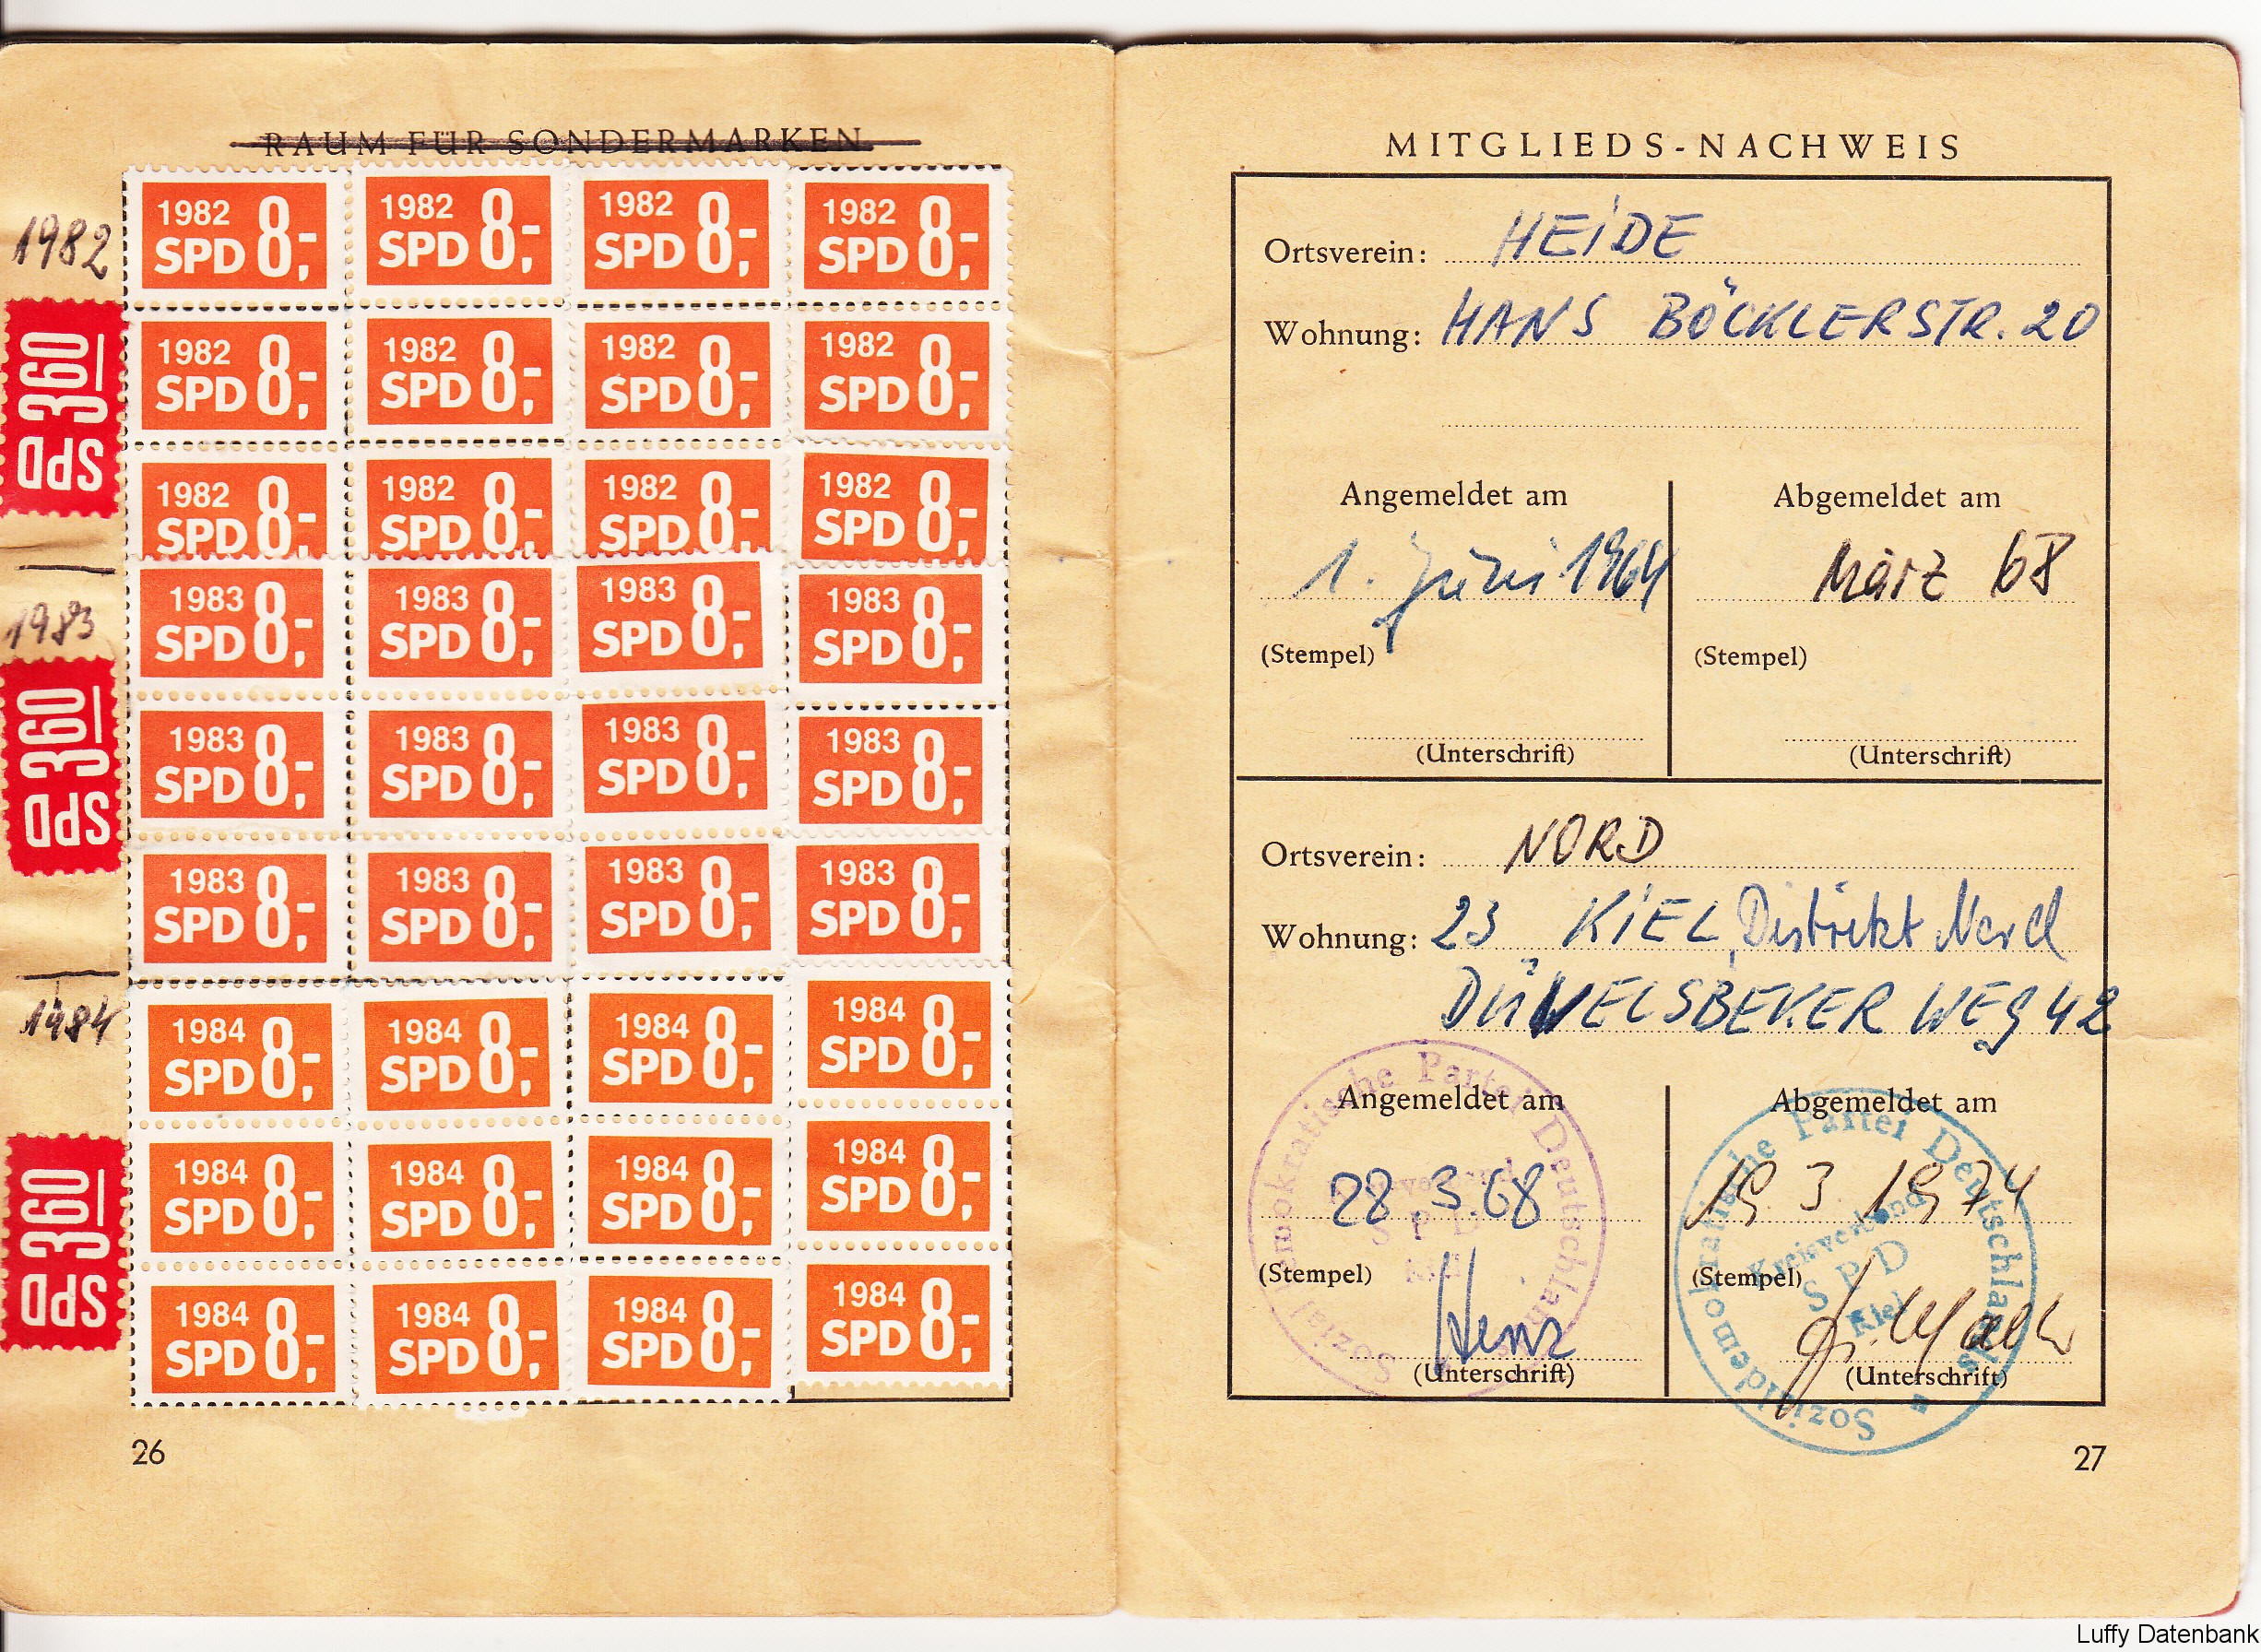 RAUM FÜR SONDERMARKEN
1982
1982 SPD 8,- 1982 SPD 8,- 1982 SPD 8,- 1982 SPD 8,-
SPD 360
1982 SPD 8,- 1982 SPD 8,- 1982 SPD 8,- 1982 SPD 8,-
1982 SPD 8,- 1982 SPD 8,- 1982 SPD 8,- 1982 SPD 8,-
1983
1983 SPD 8,- 1983 SPD 8,- 1983 SPD 8,- 1983 SPD 8,-
SPD 360
1983 SPD 8,- 1983 SPD 8,- 1983 SPD 8,- 1983 SPD 8,-
1983 SPD 8,- 1983 SPD 8,- 1983 SPD 8,- 1983 SPD 8,-
1984
1984 SPD 8,- 1984 SPD 8,- 1984 SPD 8,- 1984 SPD 8,-
SPD 360
1984 SPD 8,- 1984 SPD 8,- 1984 SPD 8,- 1984 SPD 8,-
1984 SPD 8,- 1984 SPD 8,- 1984 SPD 8,- 1984 SPD 8,-
26
MITGLIEDS-NACHWEIS
Ortsverein: HEIDE
Wohnung: HANS BÖCKLERSTR. 20
Angemeldet am Abgemeldet am
1. Juni 1964 März 68
(Stempel) (Stempel)
(Unterschrift) (Unterschrift)
Ortsverein: NORD
Wohnung: 23 KIEL, Distrikt Nord
DÜVELSBEKER WEG 42
Angemeldet am Abgemeldet am
28.3.68 19.3.1974
(Stempel) (Stempel)
(Unterschrift) (Unterschrift)
Sozialdemokratische Partei Deutschlands
Kreisverband
SPD
Kiel
Sozialdemokratische Partei Deutschlands
Kreisverband
SPD
Kiel
27
Luffy Datenbank